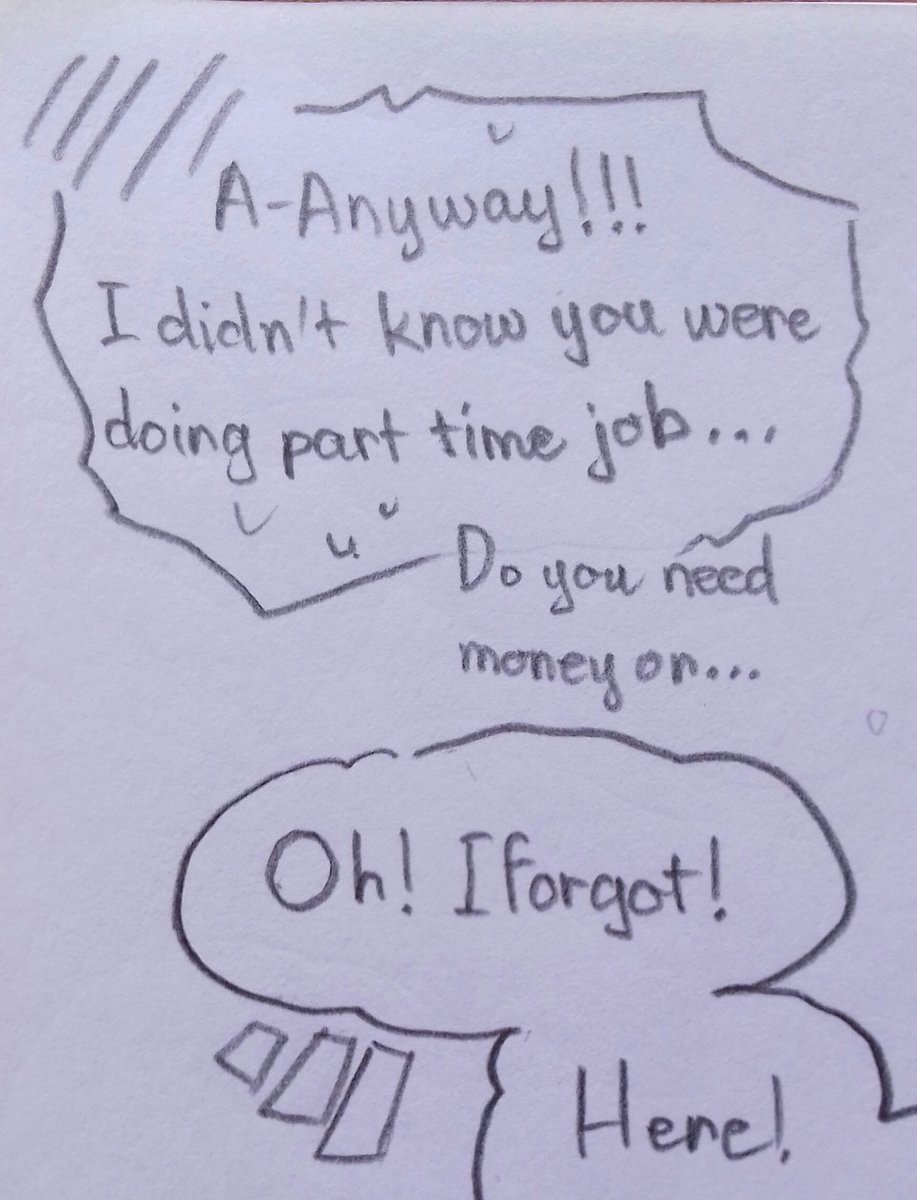 A-Anyway!!!
I didn't know you were
doing part time job...
Do you need
money or...
Oh! I forgot!
Here!